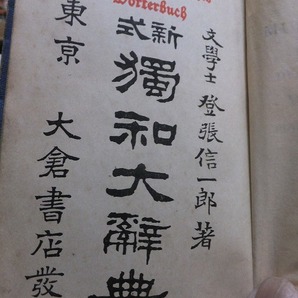 Wörterbuch
文學士 登張信一郎著
新式
獨和大辭典
東京 大倉書店發